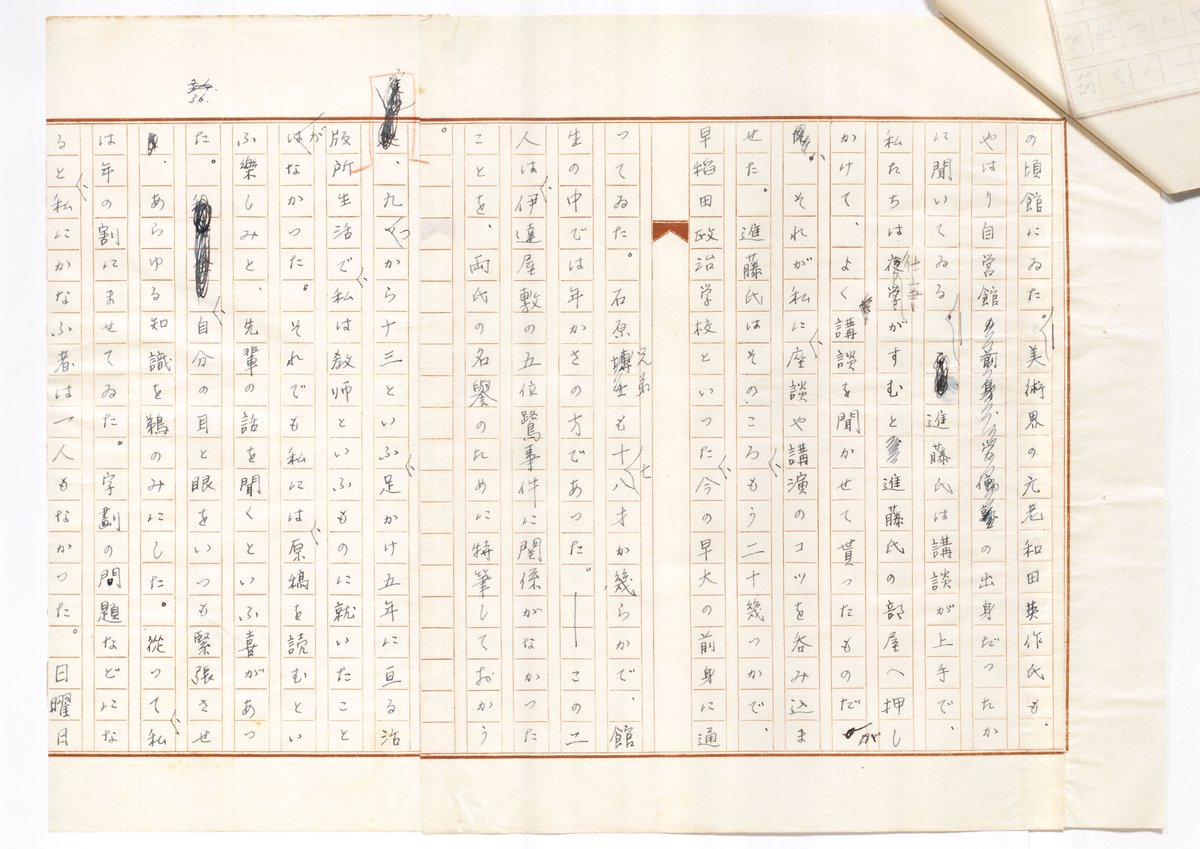 の頃館にゐた。美術界の元老和田英作氏も、
やはり自営館の出身だつたか
に聞いてゐる。進藤氏は講談が上手で、
私たちは仕事がすむと進藤氏の部屋へ押し
かけて、よく講談を聞かせて貰つたものだが
、それが私に座談や講演のコツを呑み込ま
せた。進藤氏はそのころもう二十幾つかで、
早稲田政治学校といつた今の早大の前身に通
つてゐた。石原兄弟も十七八才か幾らかで、館
生の中では年かさの方であつた。――この二
人は伊達屋敷の五位鷺事件に関係がなかつた
ことを、両氏の名譽のために特筆しておかう
。
36.
、九つから十三といふ足かけ五年に亘る活
版所生活で私は教師といふものに就いたこと
がなかつた。それでも私には原稿を読むとい
ふ樂しみと、先輩の話を聞くといふ喜があつ
た。自分の耳と眼をいつも緊張させ
、あらゆる知識を鵜のみにした。從つて私
は年の割にませてゐた。字劃の問題などにな
ると私にかなふ者は一人もなかつた。日曜日